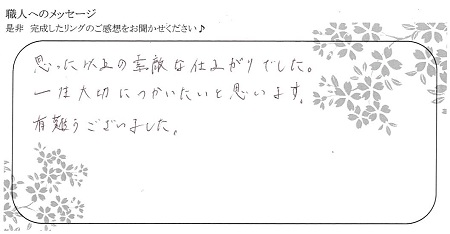 職人へのメッセージ
是非 完成したリングのご感想をお聞かせください♪
思った以上の素敵な仕上がりでした。
一生大切につかいたいと思います。
有難うございました。